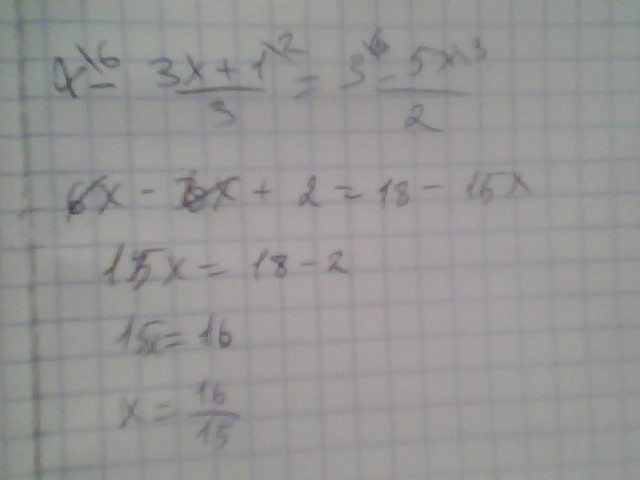 x\6 - (3x + 1\2)/3 = 3\6 - 5x\3/2
6x - 6x + 2 = 18 - 15x
15x = 18 - 2
15x = 16
x = 16/15